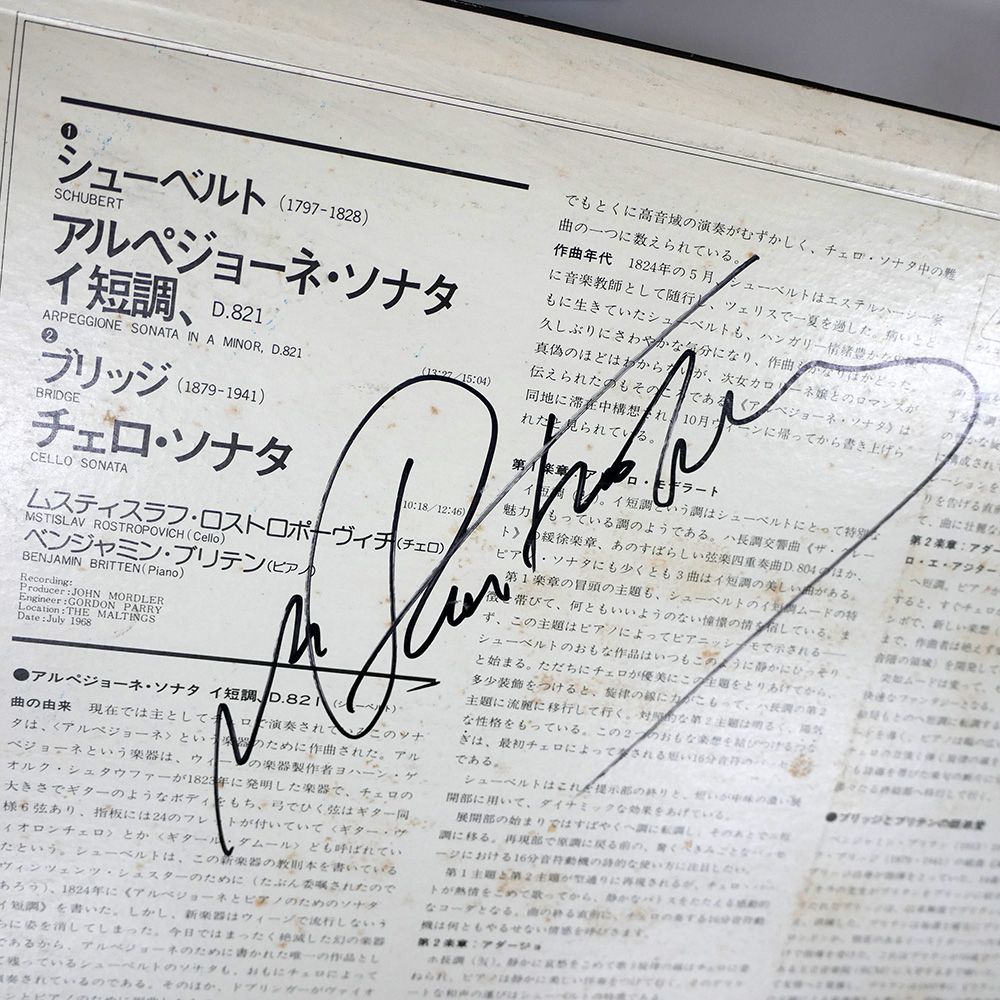 ❶
シューベルト (1797-1828)
SCHUBERT
アルペジョーネ・ソナタ
イ短調、D.821
ARPEGGIONE SONATA IN A MINOR, D.821
(13:27/15:04)
❷
ブリッジ (1879-1941)
BRIDGE
チェロ・ソナタ
CELLO SONATA
10:18/12:46)
ムスティスラフ・ロストロポーヴィチ(チェロ)
MSTISLAV ROSTROPOVICH(Cello)
ベンジャミン・ブリテン(ピアノ)
BENJAMIN BRITTEN(Piano)
Recording:
Producer:JOHN MORDLER
Engineer:GORDON PARRY
Location:THE MALTINGS
Date:July 1968
●アルペジョーネ・ソナタ イ短調、D.821(シューベルト)
曲の由来 現在では主としてチェロで演奏されているこのソナ
タは、〈アルペジョーネ〉という楽器のために作曲された。アル
ペジョーネという楽器は、ウィーンの楽器製作者ヨハーン・ゲ
オルク・シュタウファーが1823年に発明した楽器で、チェロの
大きさでギターのようなボディをもち、弓でひく弦はギター同
様6弦あり、指板には24のフレットが付いていて〈ギター・ヴ
ィオロンチェロ〉とか〈ギタール・ダムール〉とも呼ばれてい
たという。シューベルトは、この新楽器の教則本を書いている
ヴィンツェンツ・シュスターのために(たぶん委嘱されたので
あろう)、1824年に《アルペジョーネとピアノのためのソナタ
イ短調》を書いた。しかし、新楽器はウィーンで流行しないう
ちに姿を消してしまった。今日ではまったく絶滅した幻の楽器
であるから、アルペジョーネのために書かれた唯一の作品とし
て残っているシューベルトのソナタも、おもにチェロによって
演奏されているのである。そのほか、ドブリンガーがヴァイオ
でもとくに高音域の演奏がむずかしく、チェロ・ソナタ中の難
曲の一つに数えられている。
作曲年代 1824年の5月、シューベルトはエステルハージー家
に音楽教師として随行し、ツェリスで一夏を過した。病いとと
もに生きていたシューベルトも、ハンガリー情緒豊かな
久しぶりにさわやかな気分になり、作曲もかなりはかど
真偽のほどはわからないが、次女カロリーネ嬢とのロマンスが
伝えられたのもそのころである。《アルペジョーネ・ソナタ》は
同地に滞在中構想され、10月ウィーンに帰ってから書き上げら
れたと見られている。
第1楽章:アレグロ・モデラート
イ短調 イ短調という調はシューベルトにとって特別な
魅力をもっている調のようである。ハ長調交響曲《ザ・グレー
ト》の緩徐楽章、あのすばらしい弦楽四重奏曲D.804のほか、
ピアノ・ソナタにも少くとも3曲はイ短調の美しい曲がある。
第1楽章の冒頭の主題も、シューベルトのイ短調ムードの特
徴を帯びて、何ともいいようのない憧憬の情を宿している。ま
ず、この主題はピアノによってピアニッシモで示される——
シューベルトのおもな作品はいつもこのように静かにひっそり
と始まる。ただちにチェロが優美にこの主題をとりあげてから、
多少装飾をつけると、旋律の線に力がこもって、ハ長調の第2
主題に流麗に移行して行く。対照的な第2主題は明るく、陽気
な性格をもっている。この2つのおもな楽想を結びつけるつな
ぎは、最初チェロによって奏される短い16分音符のパッセー
である。
シューベルトはこれを提示部の終りと、短いが中味の濃い展
開部に用いて、ダイナミックな効果をあげている。
展開部の始まりではすばやくヘ調に転調し、そのあとでニ短
調に移る。再現部で原調に戻る前の、驚くべきみごとなパッセ
ージにおける16分音符動機の詩的な使い方に注目したい。
第1主題と第2主題が型通りに再現されるが、チェロ・パー
トが熱情をこめて歌ってから、静かなパトスをたたえる感動的
なコーダとなる。曲の終る直前に、チェロの奏する16分音符動
機は何ともやるせない情感を呼びさます。
第2楽章:アダージョ
第2楽章:アダー
ロ・エ・アジター
●ブリッジとブリテンの